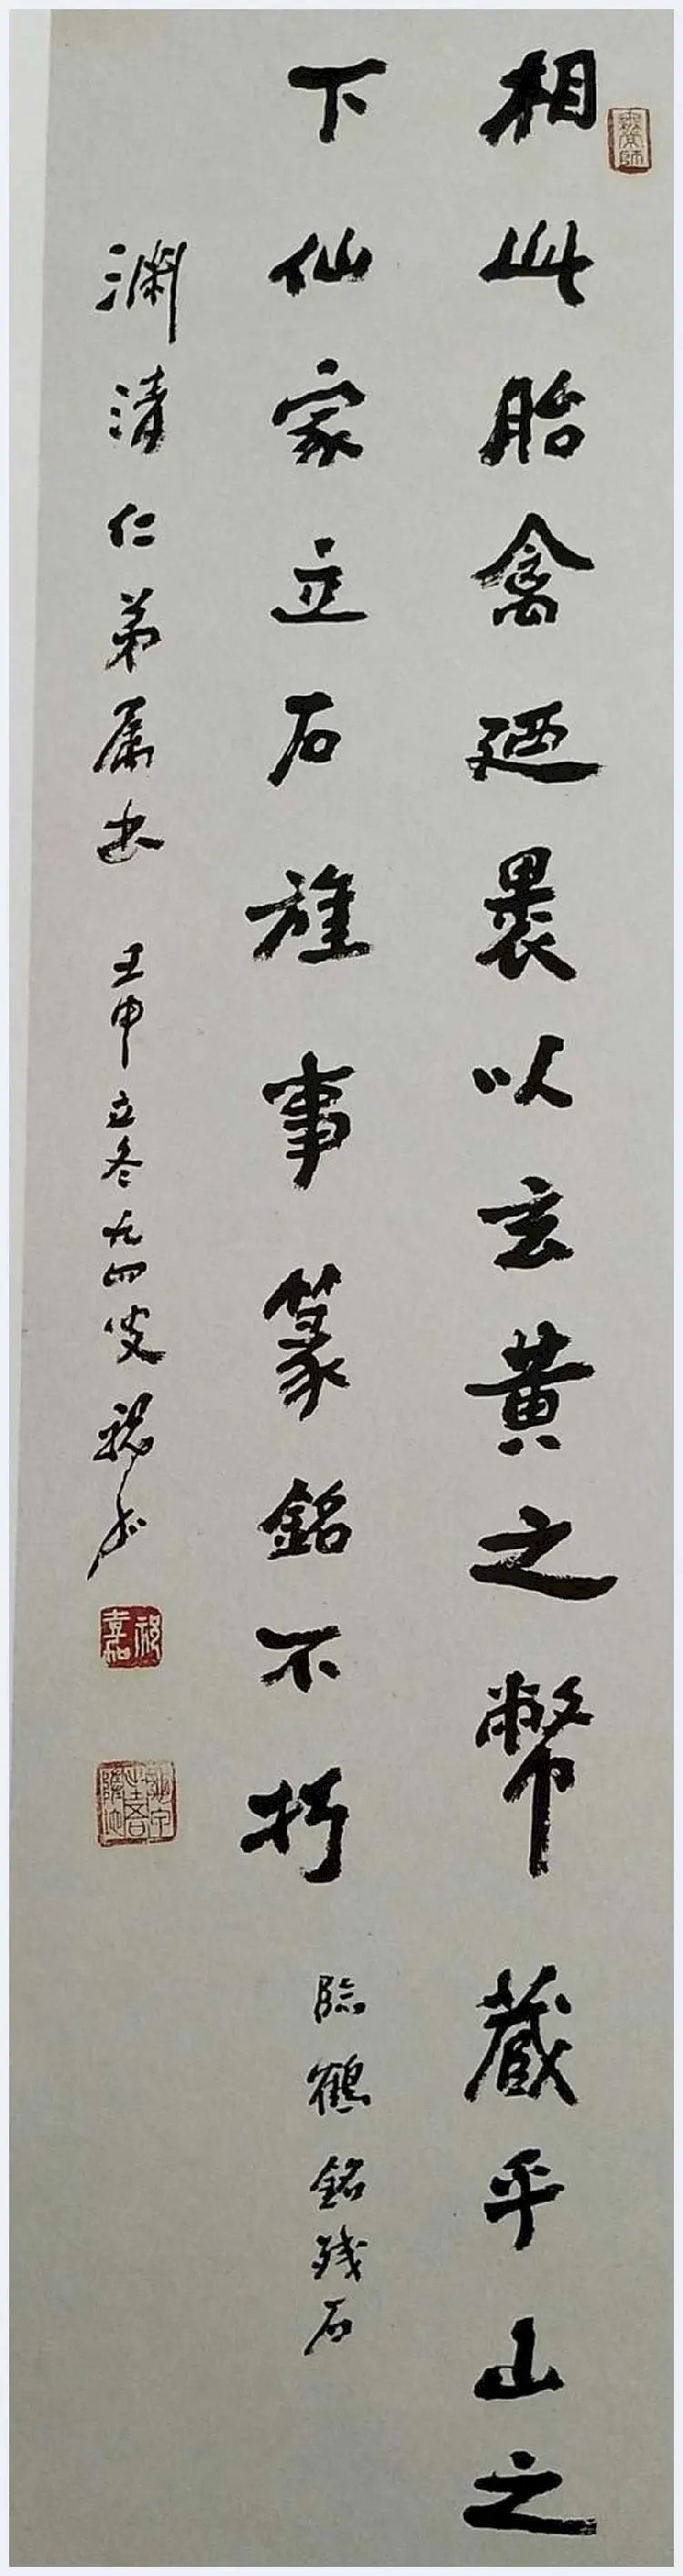 相此胎禽廼裹以玄黄之幣藏乎山之
下仙家立石旌事篆銘不朽
臨鶴銘殘石
渊清仁弟属书 壬申立冬九四叟祝嘉
祝嘉